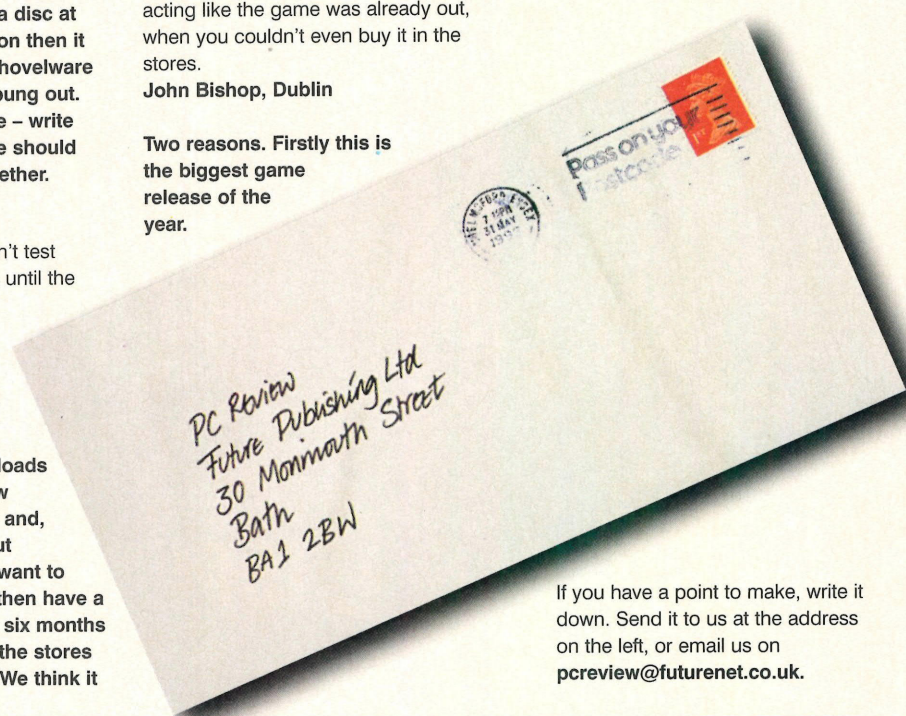 a disc at
on then it
hovelware
bung out.
e – write
e should
ether.
n't test
until the
loads
w
and,
ut
want to
then have a
six months
the stores
We think it
acting like the game was already out,
when you couldn't even buy it in the
stores.
John Bishop, Dublin
Two reasons. Firstly this is
the biggest game
release of the
year.
Pass on your
Postcode
1ST
CHELMSFORD ESSEX
31 MAY
PC Review
Future Publishing Ltd
30 Monmouth Street
Bath
BA1 2BW
If you have a point to make, write it
down. Send it to us at the address
on the left, or email us on
pcreview@futurenet.co.uk.